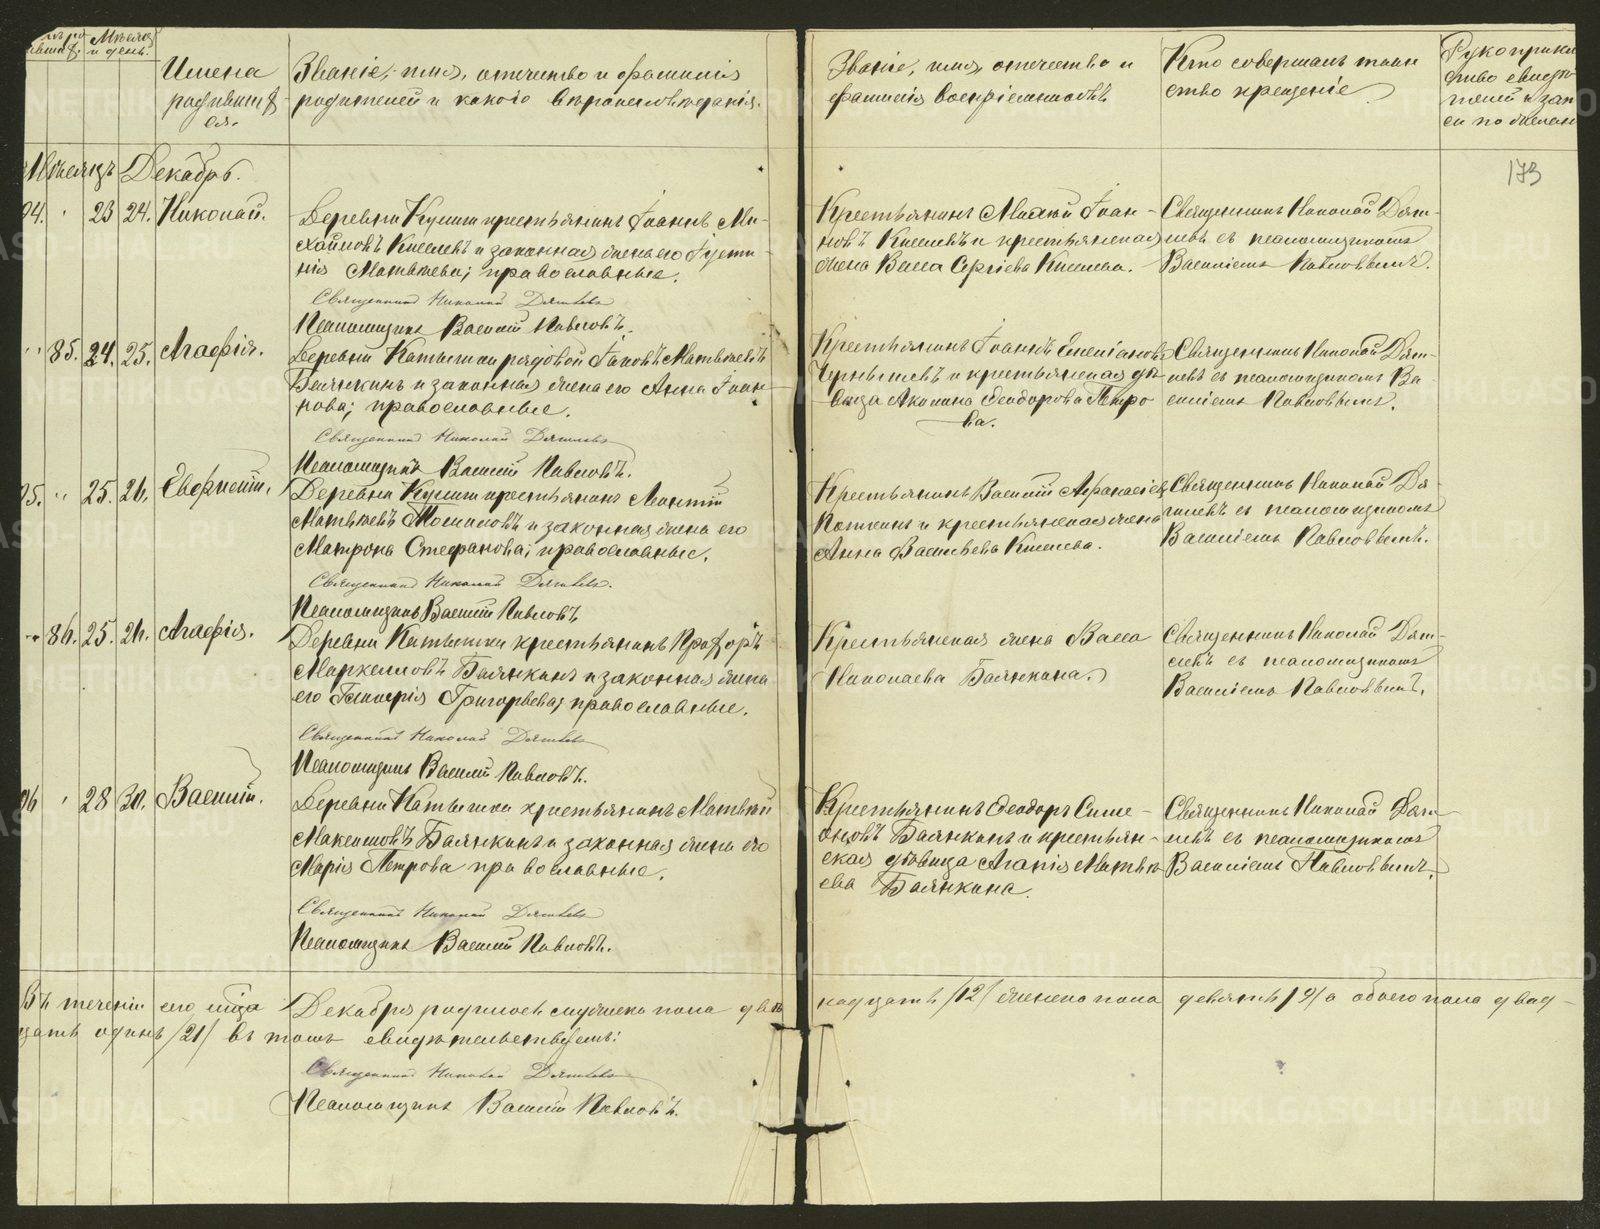 Мѣсяцъ
и день.
Имена
родивших
ся.
Званіе, имя, отчество и фамилія
родителей и какого вѣроисповѣданія.
Званіе, имя, отчество и
фамилія воспріемниковъ
Кто совершалъ таин
ство крещенія
Рукоприк
ство свидѣ
телей о зап
си по желан
173
Мѣсяцъ Декабрь.
94. " 23 24. Николай.
Деревни крестьянинъ Іоаннъ Ми-
хайловъ Киселевъ и законная жена его Густи-
нія Матвѣева; православные.
Священникъ Николай
Псаломщикъ Василій Павловъ.
Крестьянинъ Іоан-
новъ Киселевъ и крестьянская
жена Васса Сергіева Киселева.
Священникъ Николай
съ псаломщикомъ
Василіемъ Павловымъ.
" 85. 24. 25. Агафія.
Деревни рядовой Іаковъ Матвѣевъ
Балянкинъ и законная жена его Анна Іоан-
нова; православные.
Священникъ Николай
Псаломщикъ Василій Павловъ.
Крестьянинъ Іоаннъ
Чернышевъ и крестьянская дѣ
вица Акилина Ѳеодорова Петро
ва.
Священникъ Николай
съ псаломщикомъ Ва-
силіемъ Павловымъ.
95. " 25. 26. Евгеній.
Деревни крестьянинъ Леонтій
Матвѣевъ и законная жена его
Матрона Стефанова; православные.
Священникъ Николай
Псаломщикъ Василій Павловъ
Крестьянинъ Василій Афанасіевъ
и крестьянская жена
Анна Васильева Киселева.
Священникъ Николай
съ псаломщикомъ
Василіемъ Павловымъ.
" 86. 25. 26. Агафія.
Деревни крестьянинъ Прохоръ
Маркелловъ Балянкинъ и законная жена
его Гликерія Григорьева; православные.
Священникъ Николай
Псаломщикъ Василій Павловъ.
Крестьянская жена Васса
Николаева Балянкина.
Священникъ Николай
съ псаломщикомъ
Василіемъ Павловымъ.
96 " 28 30. Василій.
Деревни крестьянинъ Матвѣй
Максимовъ Балянкинъ и законная жена его
Марія Петрова православные.
Священникъ Николай
Псаломщикъ Василій Павловъ.
Крестьянинъ Ѳеодоръ Симе-
оновъ Балянкинъ и крестьян-
ская дѣвица Агапія Матвѣ
ева Балянкина.
Священникъ Николай
съ псаломщикомъ
Василіемъ Павловымъ.
Въ теченіи сего мѣсяца Декабря родилось мужеска пола двѣ
надцать /12/ женска пола девять /9/ а обоего пола двад-
цать одинъ /21/ въ томъ свидѣтельствуемъ:
Священникъ Николай
Псаломщикъ Василій Павловъ.
METRIKI.GASO-URAL.RU